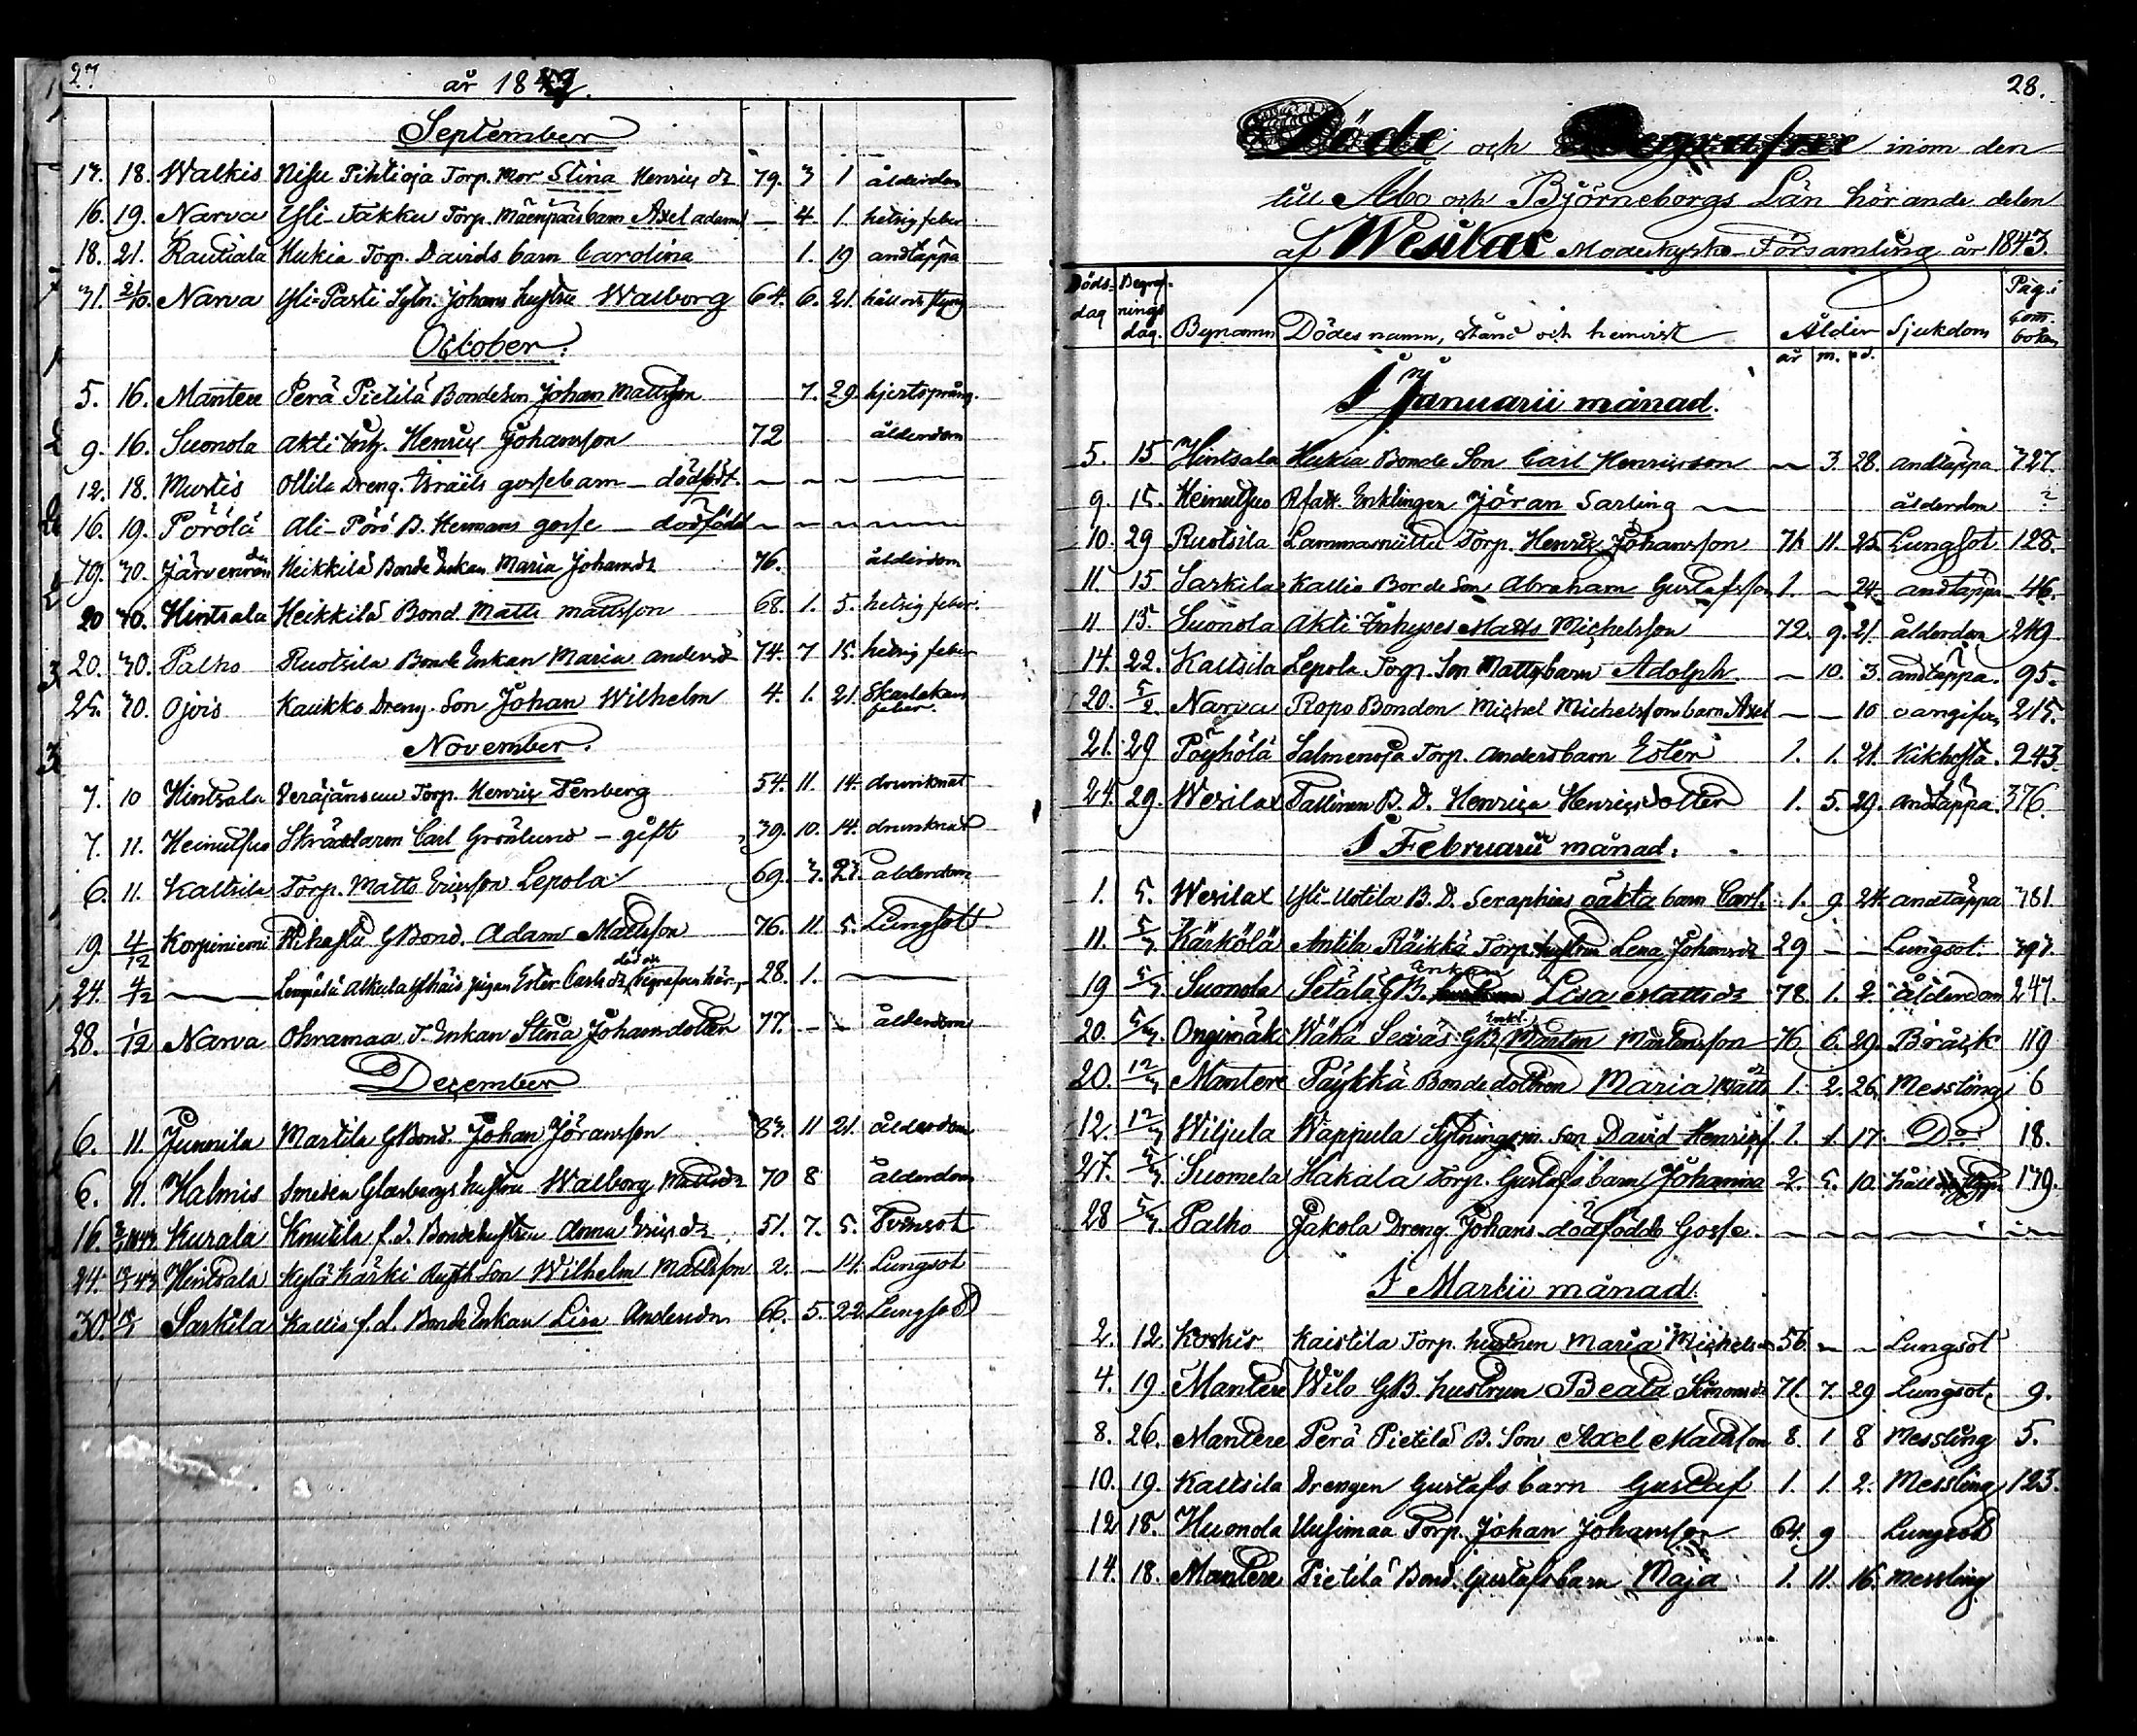 27.
år 1842.
September
17. 18. Walkis Nisu Pihtioja Torp. Mor Stina Henrics dr 79. 3 1 ålderdom
16. 19. Narva Yli-Takku Torp. Mäenpääs barn Axel adams — 4. 1. hetsig feber
18. 21. Rautiala Hukia Torp. Davids barn Carolina 1. 19 andtäppa
31. 2/10. Narva Yli-Pasti Sytn. Johans hustru Walborg 64. 6. 21. håll och styng
October.
5. 16. Mantere Perä Pietilä Bondeson Johan Mattsson 7. 29. hjertsprång.
9. 16. Suonola Akti Inh. Henric Johansson 72 ålderdom
12. 18. Murtis Ollila Dreng. Israëls gossebarn — dödfödt. — — — —
16. 19. Pörölä Ali-Pörö B. Hermans gosse — dödfödd — — — —
19. 30. Järvenrån Heikkilä Bonde Enkan Maria Johansdr 76. ålderdom
20 30. Hintsala Heikkilä Bond. Matts Mattsson 68. 1. 5. hetsig feber.
20. 30. Palho Ruotsila Bonde Enkan Maria Andersdr 74. 7 15. hetsig feber
25. 30. Ojois Kaukko Dreng. Son Johan Wilhelm 4. 1. 21. Skarlakans
feber.
November.
7. 10 Hintsala Veräjänsuu Torp. Henric Fenberg 54. 11. 14. drunknat
7. 11. Heinulhuo Skräddaren Carl Grönlund — gift 39. 10. 14. drunknat
6. 11. Kaltsila Torp. Matts Ericsson Lepola 69. 3. 27. ålderdom
19. 4/12 Korpiniemi Pihastu GBond. Adam Mattsson 76. 11. 5. Lungsot
död och
24. 4/12 — Lempälä Alkula pigan Ester Carls dr, begrafven här, 28. 1. —
28. 1/12 Narva Ohramaa T. Enkan Stina Johansdotter 77. — — ålderdom
December
6. 11. Junnila Martila GBond. Johan Jöransson 83. 11 21. ålderdom
6. 11. Halmis Smeden Glasbergs hustru Walborg Mattsdr 70 8 ålderdom
16. Kurala Knutila f.d. Bondehustru Anna Erics dr 51. 7. 5. Tvinsot
24. Hintsala Kylä Kärki Rusth Son Wilhelm Mattsson 2. — 14. Lungsot
30. Sarkila Kallio f.d. Bonde Enkan Lisa Andersdr 66. 5. 22. Lungsot
28.
Döde och Begrafne inom den
till Åbo och Björneborgs Län hörande delen
af Wesilax Moderkyrko-Församling år 1843.
Döds-dag Begrafnings dag. Bynamn Dödes namn, stånd och hemvist Ålder Sjukdom Pag. i Com. boken
år m. d.
I Januarii månad.
5. 15 Hintsala Hukia Bonde Son Carl Henricsson — 3. 28. andtäppa 327.
9. 15. Heinulhuo Rfatt. Enklingen Jöran Sarling — ålderdom ?
10. 29 Ruotsila Lammasniittu Torp. Henric Johansson 71. 11. 25. Lungsot. 128.
11. 15 Sarkila Kallio Bonde Son Abraham Gustafsson 1. — 24. andtäppa 46.
11 15. Suonola Akti Inhyses Matts Michelsson 72. 9. 21. ålderdom 249
14. 22. Kaltsila Lepola Torp. Son Matts barn Adolph. — 10. 3. andtäppa. 95.
20. 5/2. Narva Ropo Bonden Michel Michelssons barn Axel — — 10 215.
21. 29 Pöyhölä Salmenoja Torp. Anders barn Ester 1. 1. 21. Kikhosta. 243.
24. 29. Wesilax Tallinen B. D. Henrica Henricsdotter 1. 5. 29. andtäppa. 376.
I Februarii månad.
1. 5. Wesilax Yli-Uotila B. D. Seraphias oäkta barn Carl. 1. 9. 24. andtäppa 381
11. 5/3 Kärkölä Anttila Räikkä Torp. hustrun Lena Johansdr 29 — — Lungsot. 397.
Enkan
19 5/3 Suonola Setälä GB. Lisa Mattsdr 78. 1. 2. ålderdom 247.
Enkl.
20. 5/3. Ongimäki Wähä Seiväs GB. Mårten Mårtensson 76 6. 29. Bråck 119
20. 12/3 Mantere Päykkä Bondedottren Maria Matts dr 1. 2. 26. Messling 6
12. 12/3 Wiljula Wappula Sytningsm. Son David Henricss. 1. 1. 17. Do 18.
27. 5/3 Suomela Hakala Torp. Gustafs barn Johanna 2. 5. 10. håll 139.
28 5/3 Palho Jakola Dreng Johans dödfödde Gosse. — — — — —
I Martii månad.
2. 12. Koskis Kaistila Torp. hustrun Maria Michelsdr 56. — — Lungsot
4. 19. Mantere Wilo GB. hustrun Beata Simonsdr 71. 7. 29 Lungsot. 9.
8. 26. Mantere Perä Pietilä B. Son Axel Mattsson 8. 1 8 Messling 5.
10. 19. Kaltsila Drengen Gustafs barn Gustaf 1. 1. 2. Messling 123.
12 18. Huonola Uusimaa Torp. Johan Johansson 64. 9 Lungsot
14. 18. Mantere Pietilä Bond. Gustafs barn Maja 1. 11. 16. messling